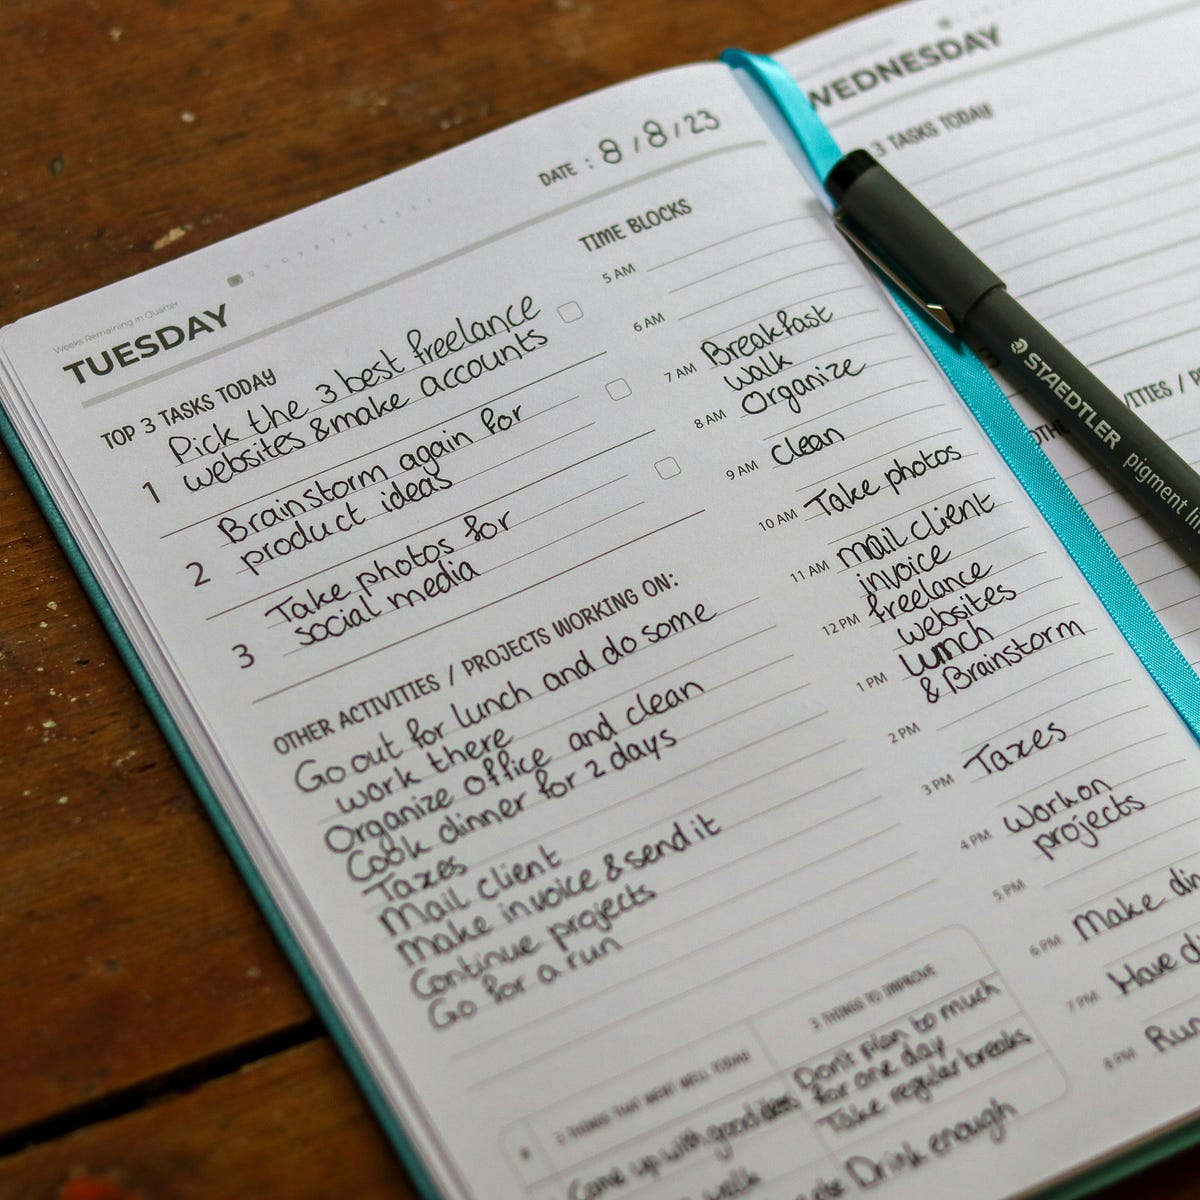 Weeks Remaining in Quarter
TUESDAY
DATE : 8 / 8 / 23
TOP 3 TASKS TODAY
1 Pick the 3 best freelance
websites & make accounts
2 Brainstorm again for
product ideas
3 Take photos for
social media
OTHER ACTIVITIES / PROJECTS WORKING ON:
Go out for lunch and do some
work there
Organize office and clean
Cook dinner for 2 days
Taxes
Mail client
Make invoice & send it
Continue projects
Go for a run
TIME BLOCKS
5 AM
6 AM
7 AM Breakfast
walk
8 AM Organize
9 AM Clean
10 AM Take photos
11 AM mail client
invoice
12 PM freelance
websites
1 PM lunch
& Brainstorm
2 PM
3 PM Taxes
4 PM work on
projects
5 PM
6 PM Make din
7 PM Have di
8 PM Run
3 THINGS THAT WENT WELL TODAY
Came up with good ideas
walk
3 THINGS TO IMPROVE
Don't plan to much
for one day
Take regular breaks
Drink enough
WEDNESDAY
3 TASKS TODAY
3
VITIES / P
OTHE
STAEDTLER pigment li